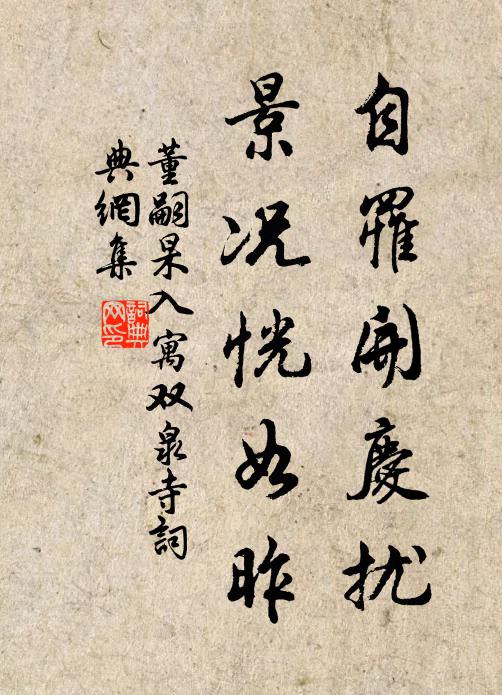 自罹開慶扰
景况恍如昨
董嗣杲入寓双泉寺詞
典網集
詞典网印